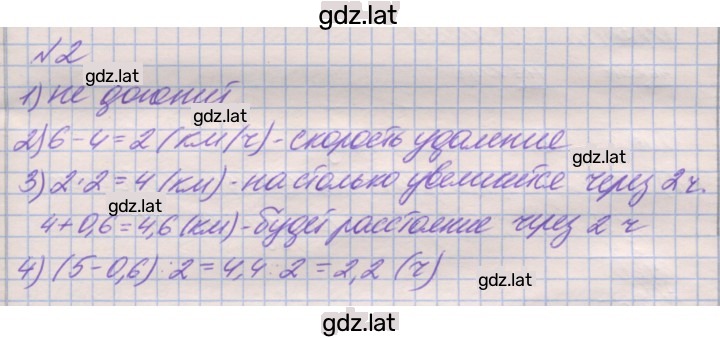 gdz.lat
№2
gdz.lat
1) не догонит
gdz.lat
2) 6-4=2 (км/ч)-скорость удаление
gdz.lat
3) 2·2=4 (км)-на столько увеличится через 2ч.
gdz.lat
4+0,6=4,6 (км)-будет расстояние через 2 ч
4) (5-0,6):2=4,4:2=2,2 (ч)
gdz.lat
gdz.lat